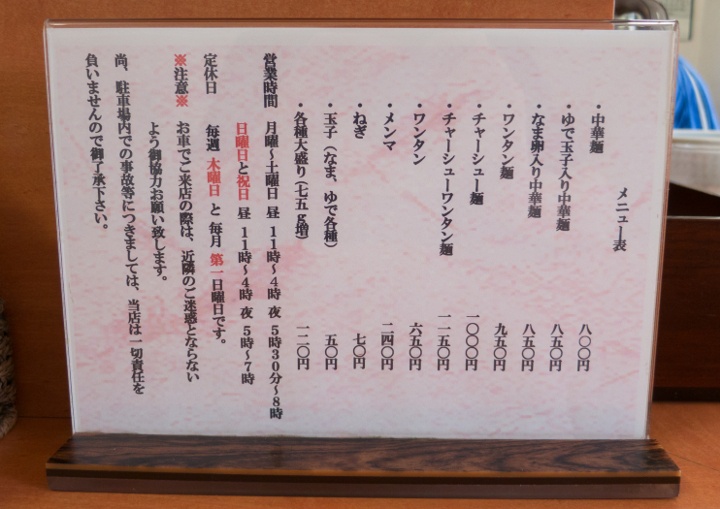 メニュー表
・中華麺 八〇〇円
・ゆで玉子入り中華麺 八五〇円
・なま卵入り中華麺 八五〇円
・ワンタン麺 九五〇円
・チャーシュー麺 一〇〇〇円
・チャーシューワンタン麺 一一五〇円
・ワンタン 六五〇円
・メンマ 二四〇円
・ねぎ 七〇円
・玉子（なま、ゆで各種） 五〇円
・各種大盛り（七五ｇ増） 一二〇円
営業時間 月曜～土曜日 昼 11時～4時 夜 5時30分～8時
日曜日と祝日 昼 11時～4時 夜 5時～7時
定休日 毎週 木曜日 と 毎月 第一日曜日です。
※注意※ お車でご来店の際は、近隣のご迷惑とならない
よう御協力お願い致します。
尚、駐車場内での事故等につきましては、当店は一切責任を
負いませんので御了承下さい。